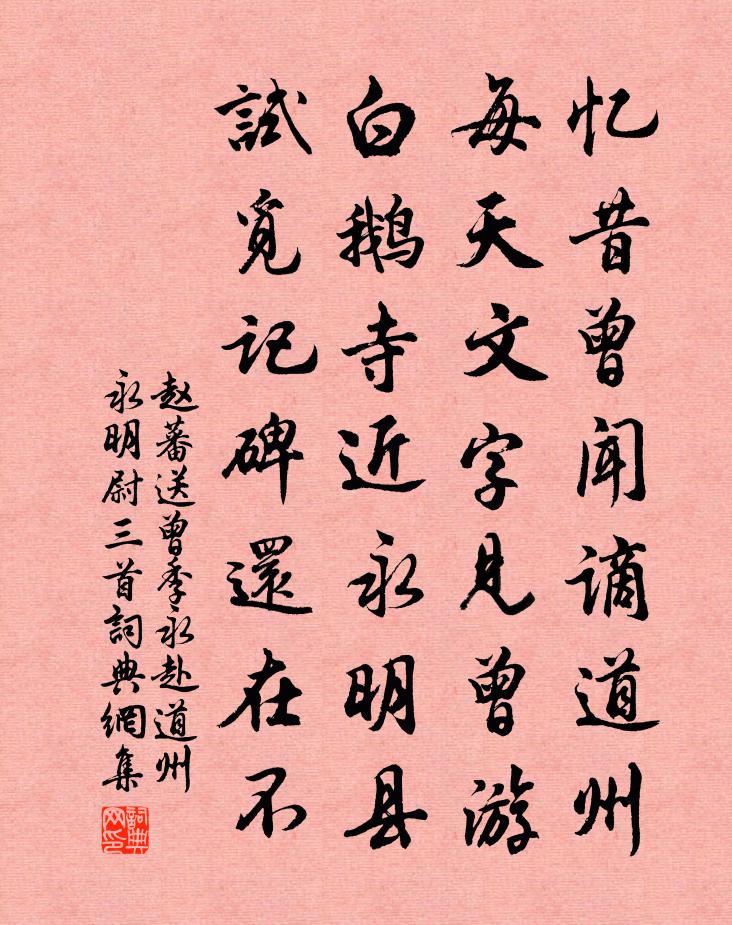 忆昔曾闻谪道州
每天文字见曾游
白鹅寺近永明县
試覓记碑還在不
赵蕃送曾季永赴道州
永明尉三首詞典網集
詞典网印